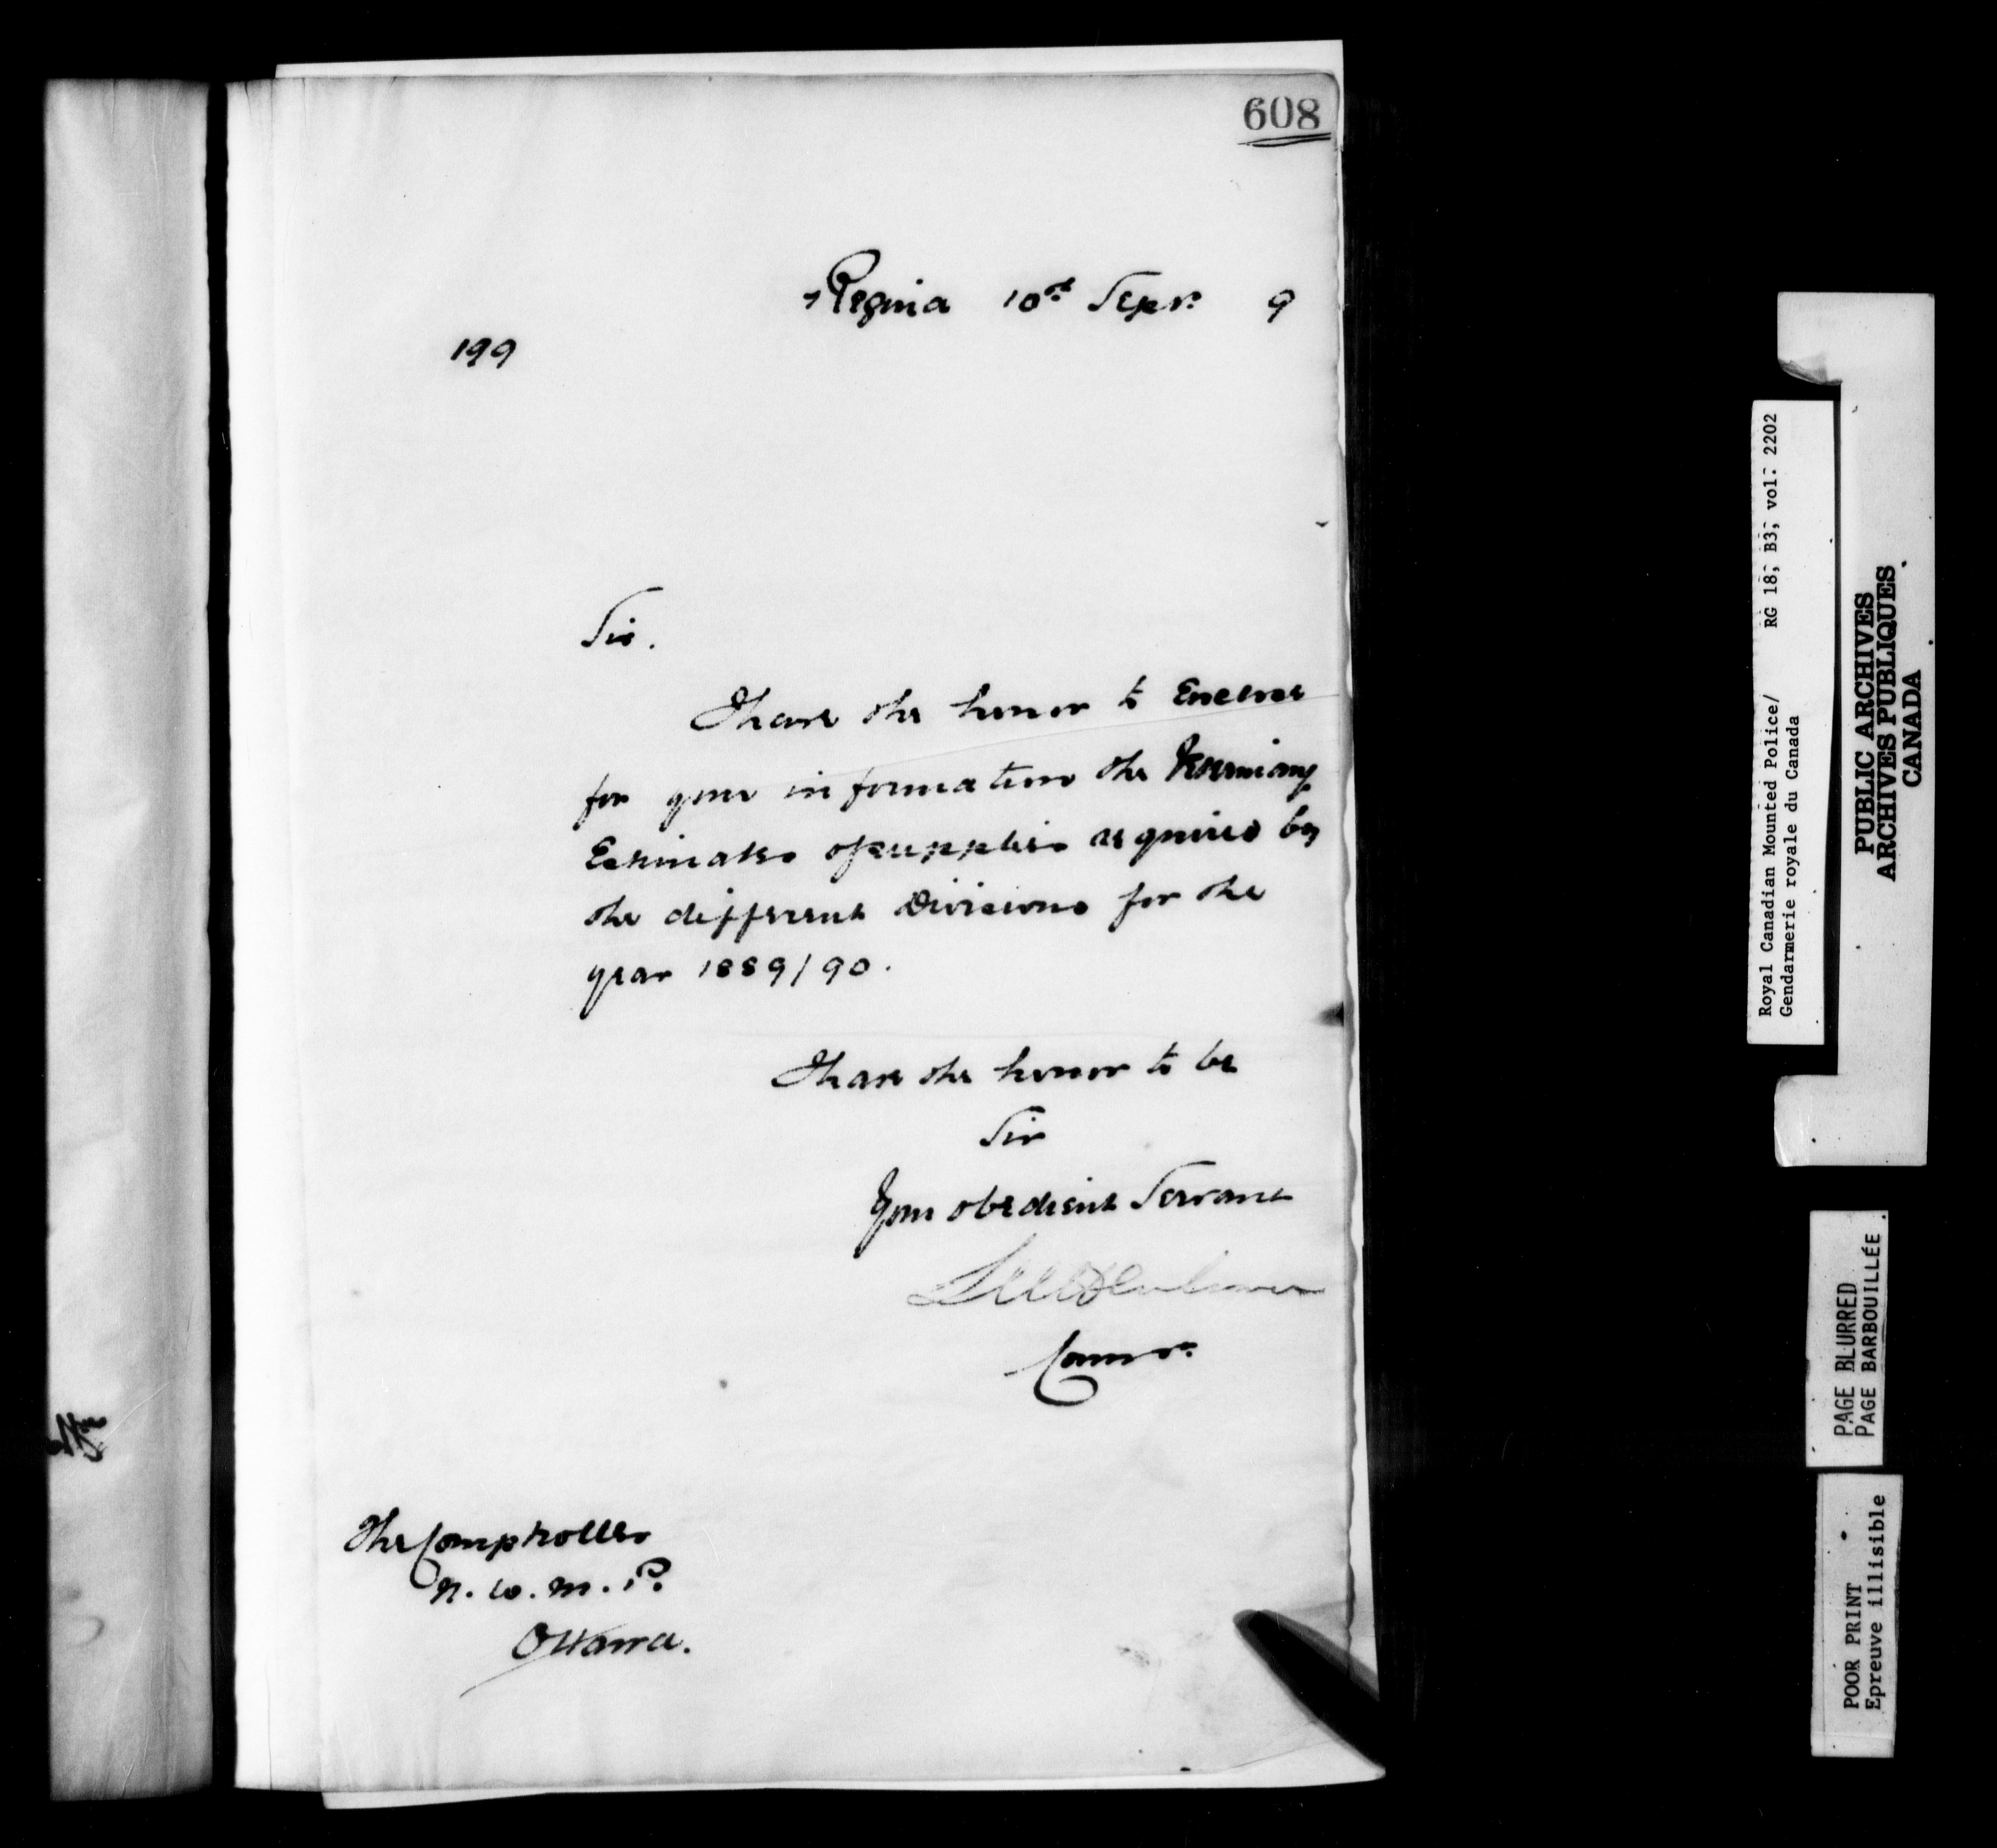 608
Regina 10th Sepr. 9
199
Sir.
I have the honor to Enclose
for your information the
Estimates of supplies required by
the different Divisions for the
year 1889/90.
I have the honor to be
Sir
Your obedient Servant
Commr.
The Comptroller
N. W. M. P.
Ottawa.
Royal Canadian Mounted Police/ RG 18, B3, vol. 2202
Gendarmerie royale du Canada
PUBLIC ARCHIVES
ARCHIVES PUBLIQUES
CANADA
PAGE BLURRED
PAGE BARBOUILLÉE
POOR PRINT
Epreuve illisible